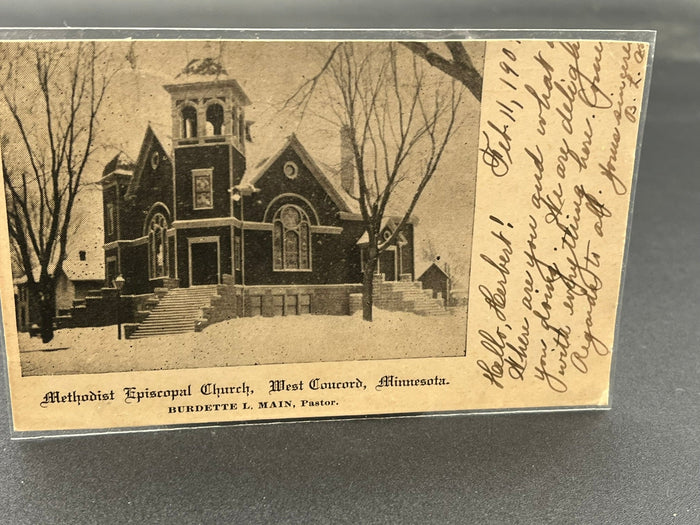 Methodist Episcopal Church, West Concord, Minnesota.
BURDETTE L. MAIN, Pastor.
Feb 11, 190
Hello, Herbert!
Where are you and what a
you doing. We are deligh
with everything here.
Regards to all. Yours sincere
B. L.